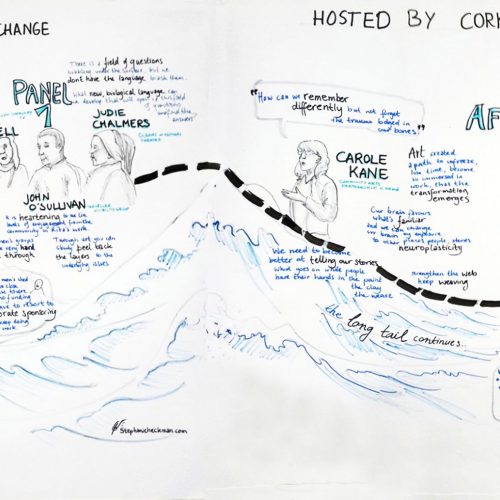 CHANGE
HOSTED BY CORK
There is a field of questions
bubbling under the surface, but we
don't have the language to ask them.
What new, biological language can
we develop that will open up this field
of questions
answers
PANEL
1
ELL
JUDIE
CHALMERS
JOHN
O'SULLIVAN
It is heartening to see the
levels of engagement from the
community in Rita's work
men's groups
very hard
through
Through art you can
peel back
the layers to the
underlying issues
men's shed
close
there
no funding
have to resort to
corporate sponsoring
keep doing
work
Stephanieheckman.com
"How can we remember
differently but not forget
the trauma lodged in
our bones."
CAROLE
KANE
COMMUNITY ARTS
PARTNERSHIP
AF
Art created
a path to unfreeze,
like time, become
so immersed in
work, that the
transformation
emerges
Our brain favours
what's familiar
and we can change
through my exposure
to other places, people, stories
neuroplasticity
We need to become
better at telling our stories
What goes on while people
have their hands in the paint
the clay
the weave
strengthen the web
keep weaving
the long tail continues...